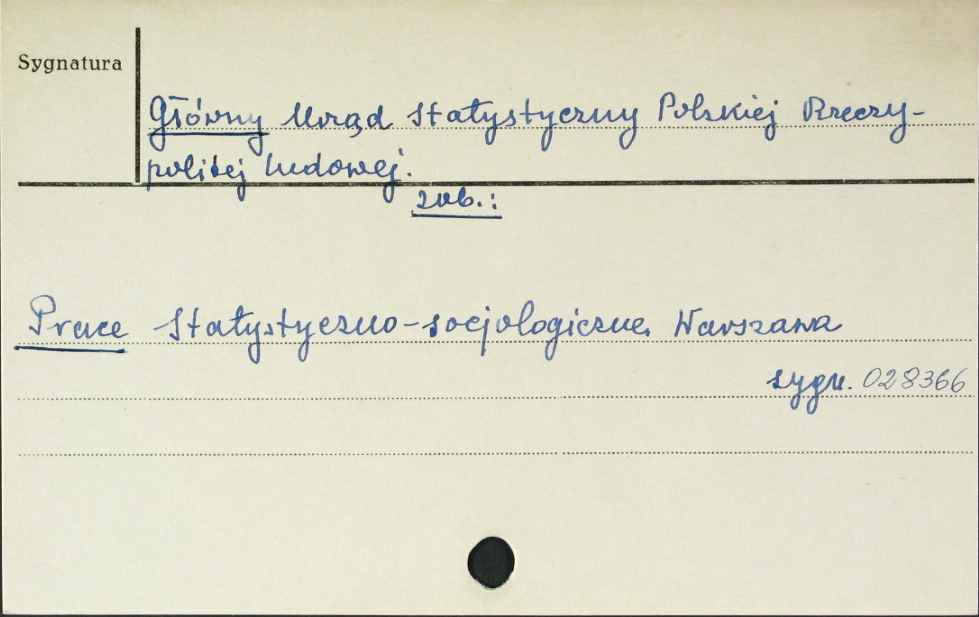 Sygnatura
Główny Urząd Statystyczny Polskiej Rzeczy-
politej Ludowej.
zob.:
Prace Statystyczno-socjologiczne. Warszawa
sygn. 028366